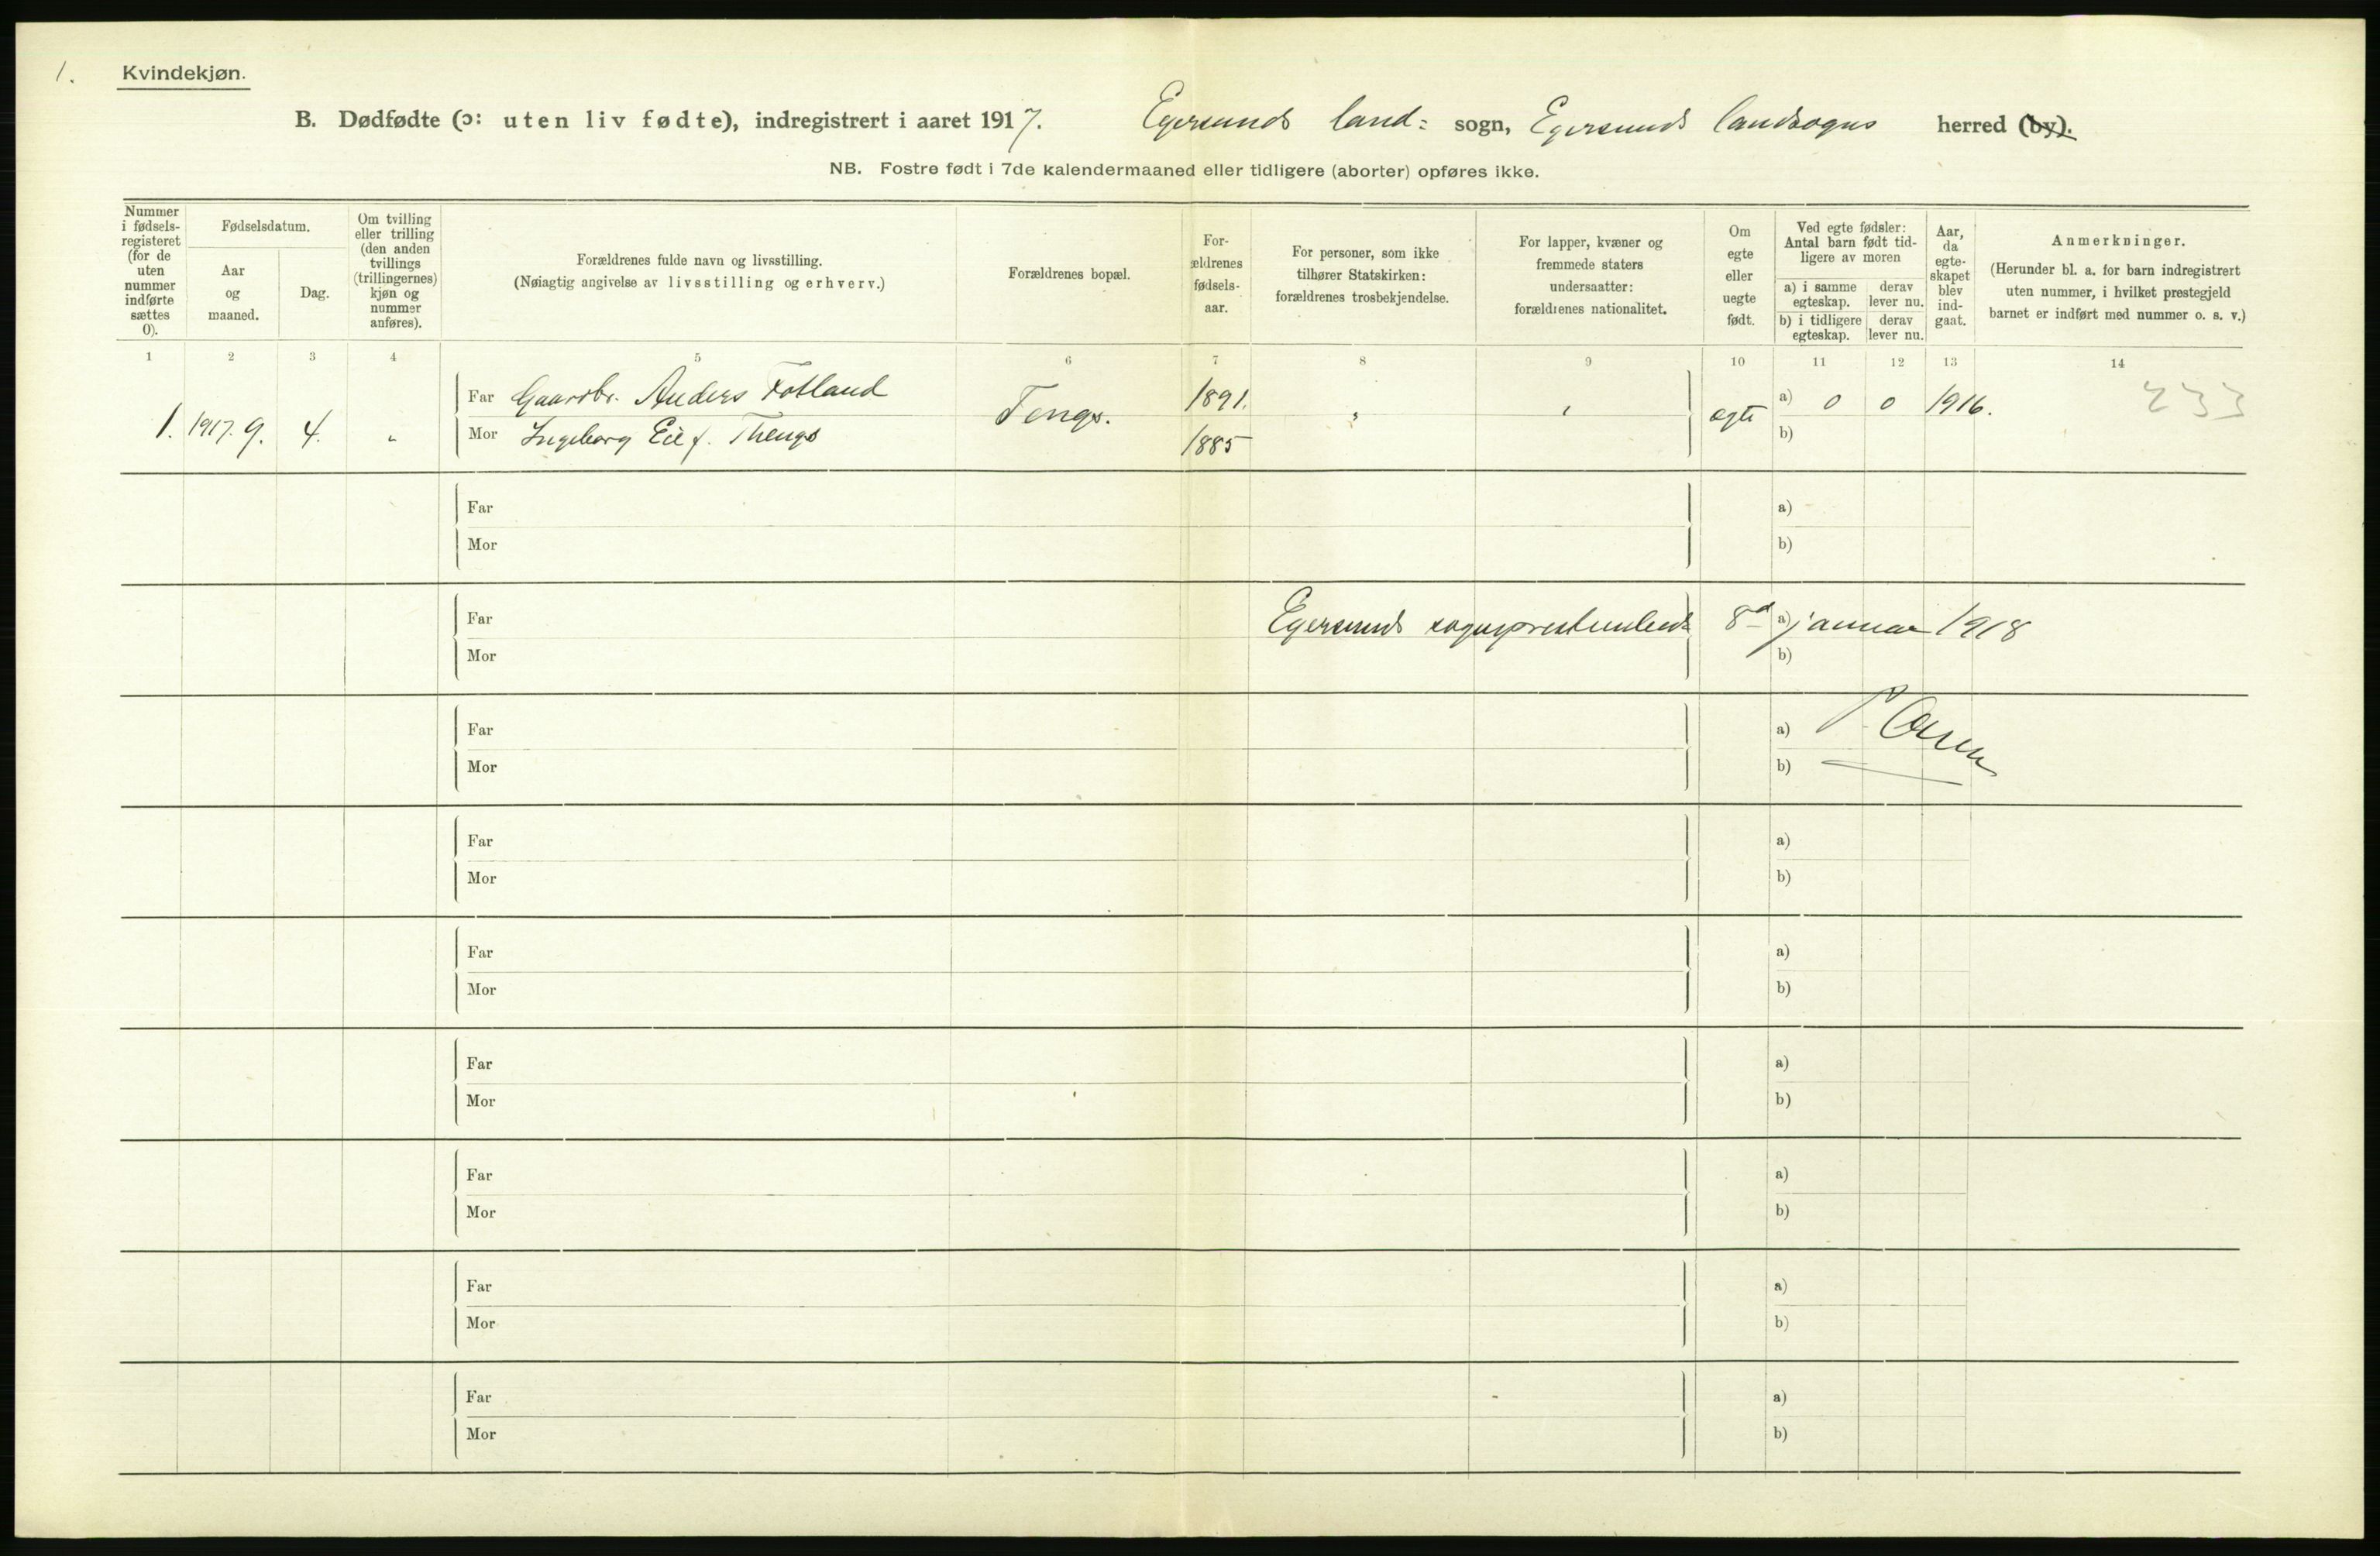 1.
Kvindekjøn.
B. Dødfødte (ɔ: uten liv fødte), indregistrert i aaret 1917. Egersunds land= sogn, Egersunds landsogns herred (by).
NB. Fostre født i 7de kalendermaaned eller tidligere (aborter) opføres ikke.
Nummer
i fødsels-
registeret
(for de
uten
nummer
indførte
sættes
0).
Fødselsdatum.
Aar
og
maaned.
Dag.
Om tvilling
eller trilling
(den anden
tvillings
(trillingernes)
kjøn og
nummer
anføres).
Forældrenes fulde navn og livsstilling.
(Nøiagtig angivelse av livsstilling og erhverv.)
Forældrenes bopæl.
For-
ældrenes
fødsels-
aar.
For personer, som ikke
tilhører Statskirken:
forældrenes trosbekjendelse.
For lapper, kvæner og
fremmede staters
undersaatter:
forældrenes nationalitet.
Om
egte
eller
uegte
født.
Ved egte fødsler:
Antal barn født tid-
ligere av moren
a) i samme
egteskap.
derav
lever nu.
b) i tidligere
egteskap.
derav
lever nu.
Aar,
da
egte-
skapet
blev
ind-
gaat.
Anmerkninger.
(Herunder bl. a. for barn indregistrert
uten nummer, i hvilket prestegjeld
barnet er indført med nummer o. s. v.)
1 2 3 4 5 6 7 8 9 10 11 12 13 14
Far Gaardbr. Anders Fotland 1891.
1. 1917. 9. 4. „ Tengs. „ „ egte a) 0 0 1916. 233
Mor Ingeborg Eie f. Thengs 1885 b)
Far a)
Mor b)
Far Egersunds sogneprestembede 8d a) januar 1918
Mor b)
Far a)
Mor b)
Far a)
Mor b)
Far a)
Mor b)
Far a)
Mor b)
Far a)
Mor b)
Far a)
Mor b)
Far a)
Mor b)